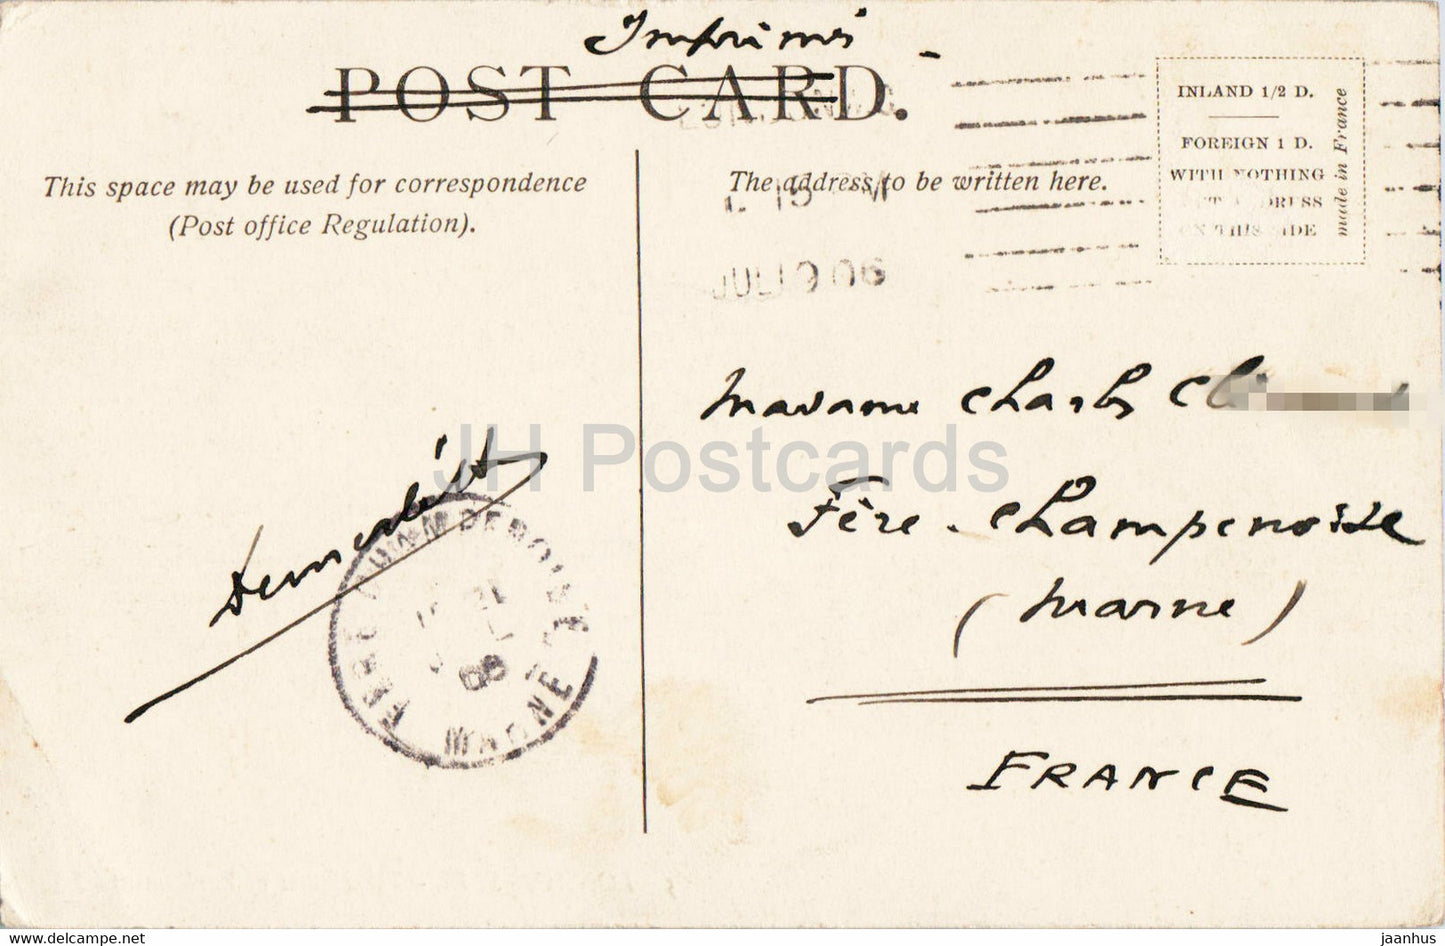 Imprimés
POST CARD.
This space may be used for correspondence
(Post office Regulation).
The address to be written here.
INLAND 1/2 D.
FOREIGN 1 D.
WITH NOTHING
ON THIS SIDE
made in France
JUL 19 06
Madame Charles
Fère-Champenoise
(Marne)
FRANCE
MARNE
06
JH Postcards
www.delcampe.net
jaanhus